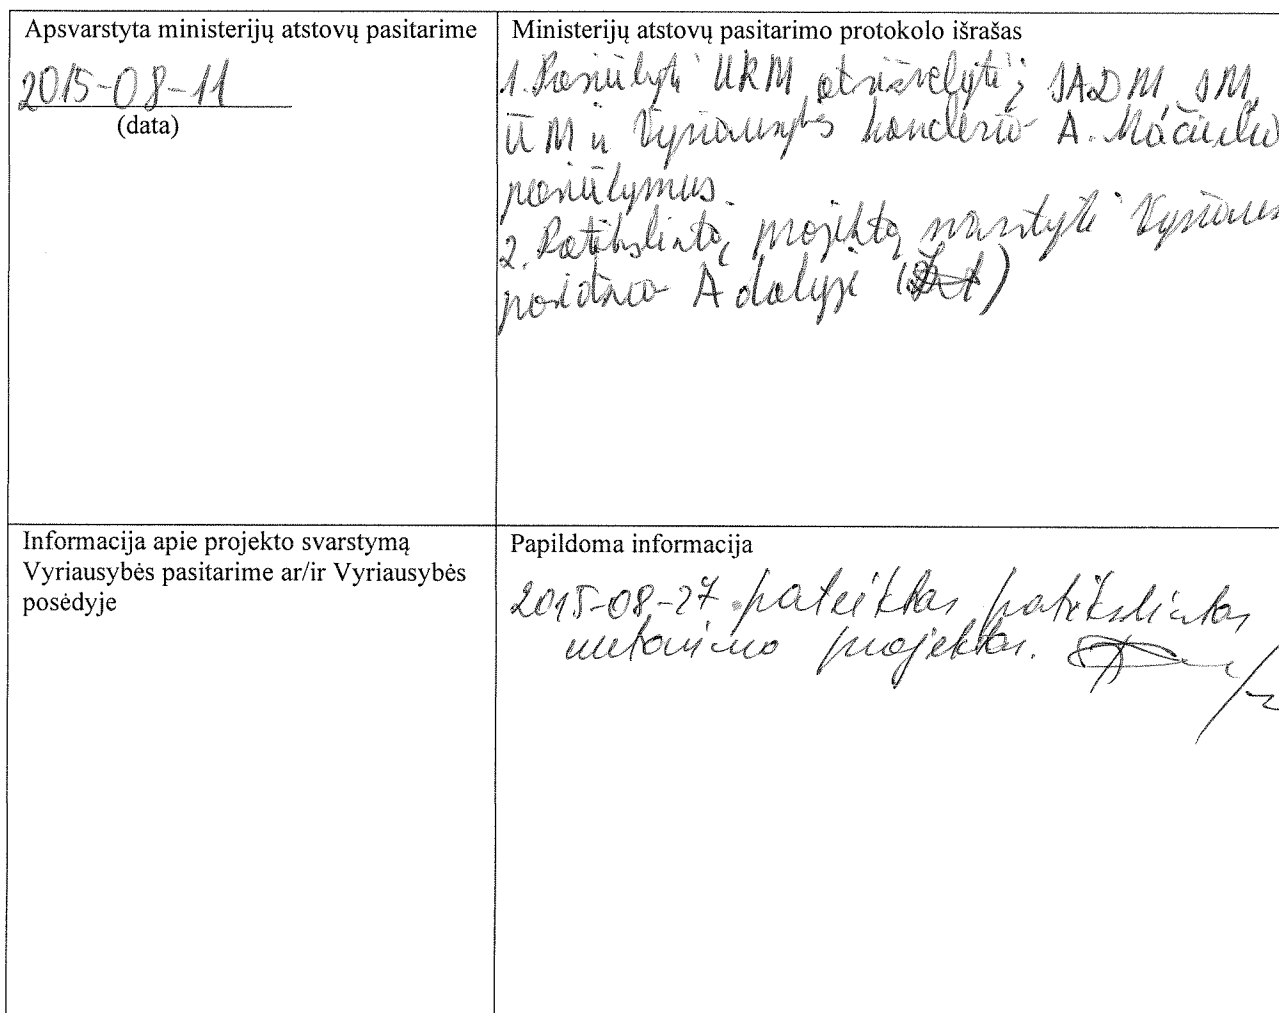 Apsvarstyta ministerijų atstovų pasitarime
2015-08-11
(data)
Ministerijų atstovų pasitarimo protokolo išrašas
1. Pasiūlyti URM atsižvelgti į SADM, SM,
ŪM ir Vyriausybės kanclerio A. Mačiulio
pasiūlymus.
2. Patikslintą projektą svarstyti Vyriausy
posėdžio A dalyje
Informacija apie projekto svarstymą
Vyriausybės pasitarime ar/ir Vyriausybės
posėdyje
Papildoma informacija
2015-08-27 pateiktas patikslintas
nutarimo projektas.